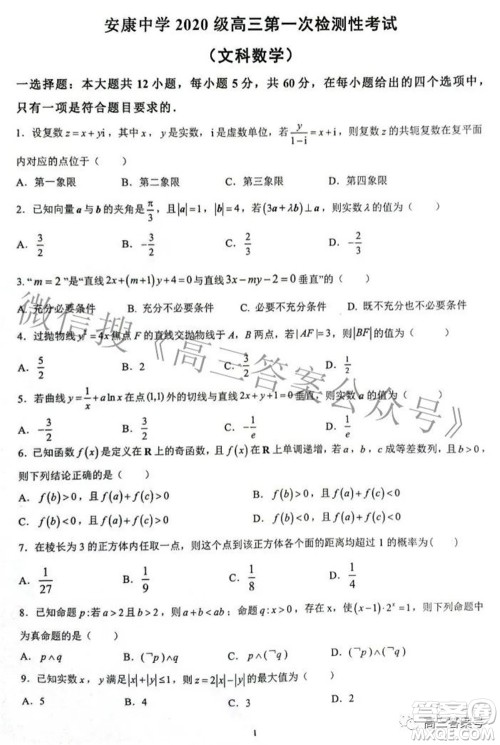 安康中学 2020 级高三第一次检测性考试
（文科数学）
一选择题：本大题共 12 小题，每小题 5 分，共 60 分，在每小题给出的四个选项中，
只有一项是符合题目要求的.
1. 设复数 z=x+yi，其中 x，y 是实数，i 是虚数单位，若 y/(1-i)=x+i，则复数 z 的共轭复数在复平面
内对应的点位于（ ）
A. 第一象限 B. 第二象限 C. 第三象限 D. 第四象限
2. 已知向量 a 与 b 的夹角是 π/3，且|a|=1，|b|=4，若(3a+λb)⊥a，则实数 λ 的值为（ ）
A. 3/2 B. -3/2 C. 2/3 D. -2/3
3. “m=2”是“直线 2x+(m+1)y+4=0 与直线 3x-my-2=0 垂直”的（ ）
A. 充分必要条件 B. 充分不必要条件 C. 必要不充分条件 D. 既不充分也不必要条件
4. 过抛物线 y²=4x 焦点 F 的直线交抛物线于 A，B 两点，若|AF|=3，则|BF|的值为（ ）
A. 5/2 B. 2 C. 3/2 D. 1/2
5. 若曲线 y=1/x+a ln x 在点(1,1)外的切线与直线 2x+y+1=0 垂直，则实数 a 的值为（ ）
A. -3/2 B. 3/2 C. -1/e D. 1/e
6. 已知函数 f(x)是定义在 R 上的奇函数，且 f(x)在 R 上单调递增，若 a，b，c 成等差数列，且 b>0，
则下列结论正确的是（ ）
A. f(b)>0，且 f(a)+f(c)>0 B. f(b)>0，且 f(a)+f(c)<0
C. f(b)<0，且 f(a)+f(c)>0 D. f(b)<0，且 f(a)+f(c)<0
7. 在棱长为 3 的正方体内任取一点，则此点到该正方体各面的距离均超过 1 的概率为(    )
A. 1/27 B. 1/9 C. 1/8 D. 1/4
8. 已知命题 p:若 a>2 且 b>2，则 a+b<ab；命题 q:存在 x>0，使(x-1)·2ˣ=1，则下列命题中
为真命题的是（ ）
A. p∧q B. (¬p)∧q C. p∧(¬q) D. (¬p)∧(¬q)
9. 已知实数 x，y 满足|x|+|y|≤1，则 z=2|x|-|y|的最大值为（ ）
A. 5 B. 4 C. 3 D. 2
1
微信搜《高三答案公众号》
高三答案号